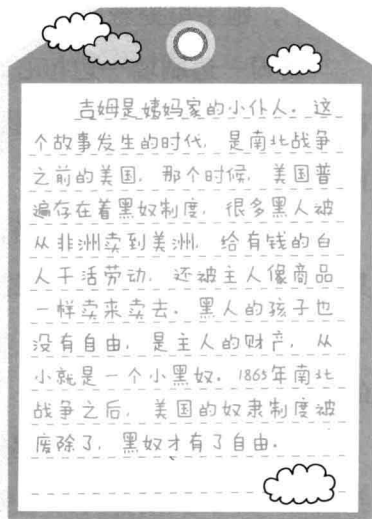 吉姆是姨妈家的小仆人。这
个故事发生的时代，是南北战争
之前的美国，那个时候，美国普
遍存在着黑奴制度，很多黑人被
从非洲卖到美洲，给有钱的白
人干活劳动，还被主人像商品
一样卖来卖去。黑人的孩子也
没有自由，是主人的财产，从
小就是一个小黑奴。1865年南北
战争之后，美国的奴隶制度被
废除了，黑奴才有了自由。